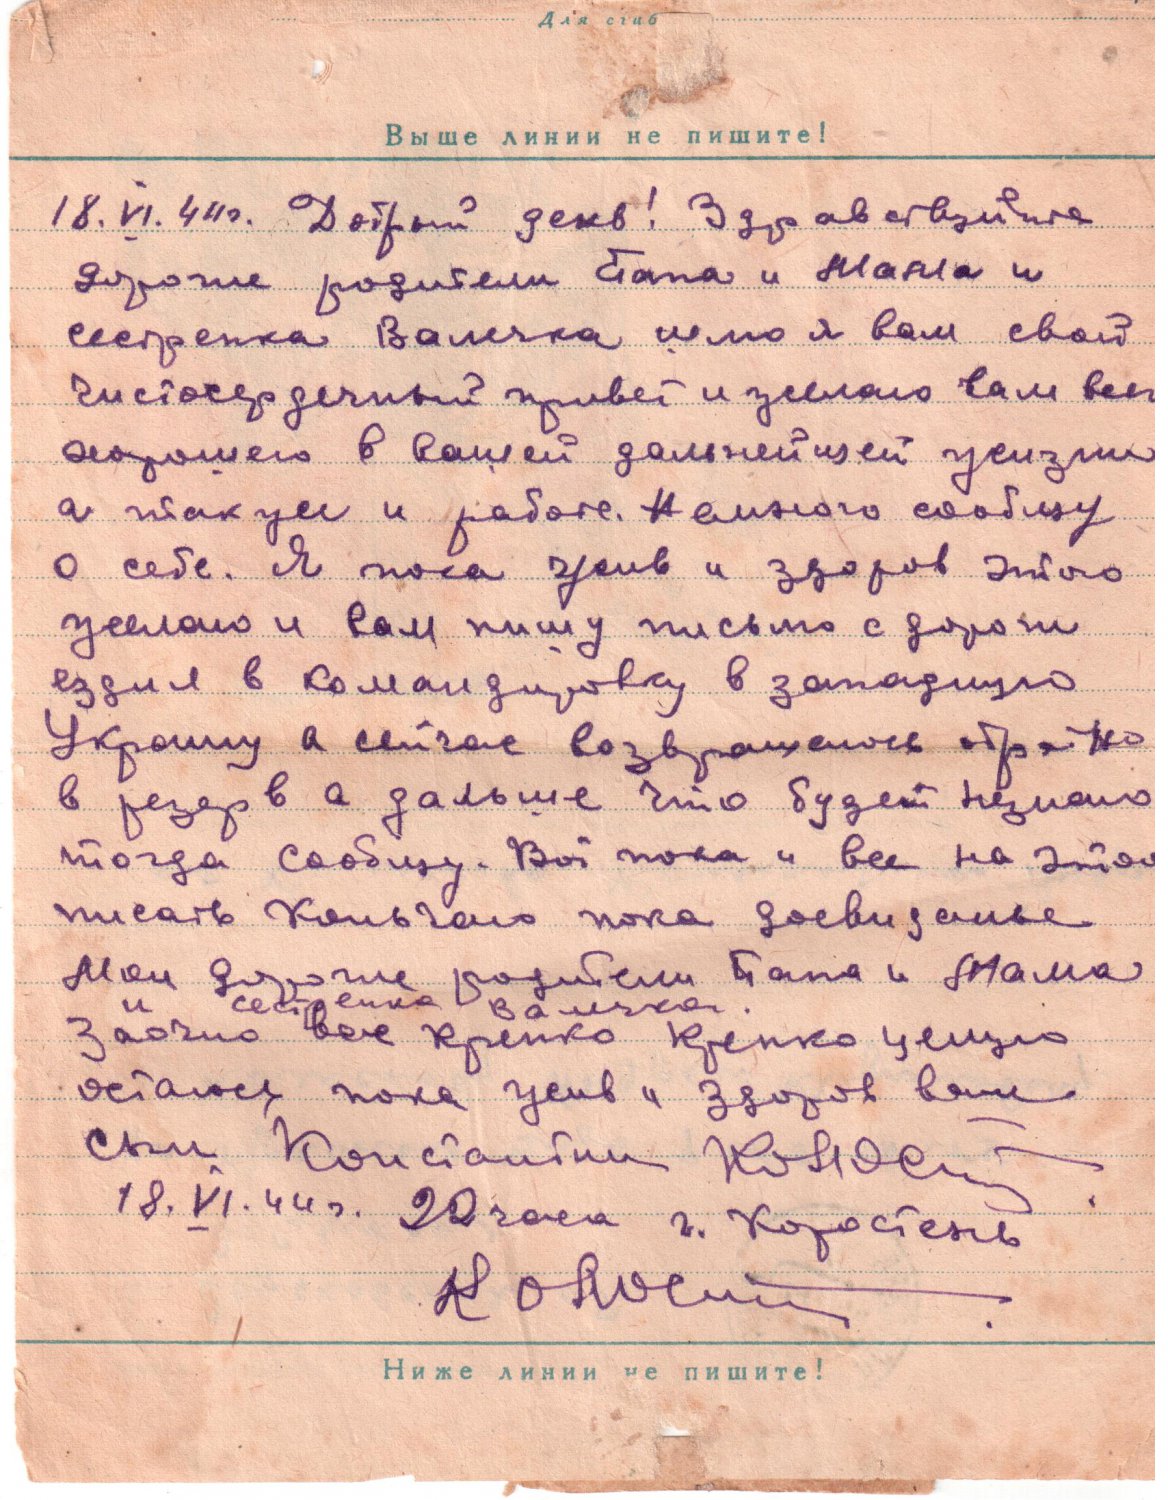 Для сгиб
Выше линии не пишите!
18.VI.44г. Добрый день! Здравствуйте
дорогие родители Папа и Мама и
сестренка Валечка шлю я вам свой
чистосердечный привет и желаю вам всего
хорошего в вашей дальнейшей жизни
а также и работе. Немного сообщу
о себе. Я пока жив и здоров этого
желаю и вам пишу письмо с дороги
ездил в командировку в западную
Украину а сейчас возвращаюсь обратно
в резерв а дальше что будет незнаю
тогда сообщу. Вот пока и все на этом
писать коньчаю пока досвиданье
Мои дорогие родители Папа и Мама
и сестренка Валечка.
Заочно всех крепко крепко целую
остаюсь пока жив и здоров ваш
сын Константин
18.VI.44г. 20 часа г. Коростень
Ниже линии не пишите!